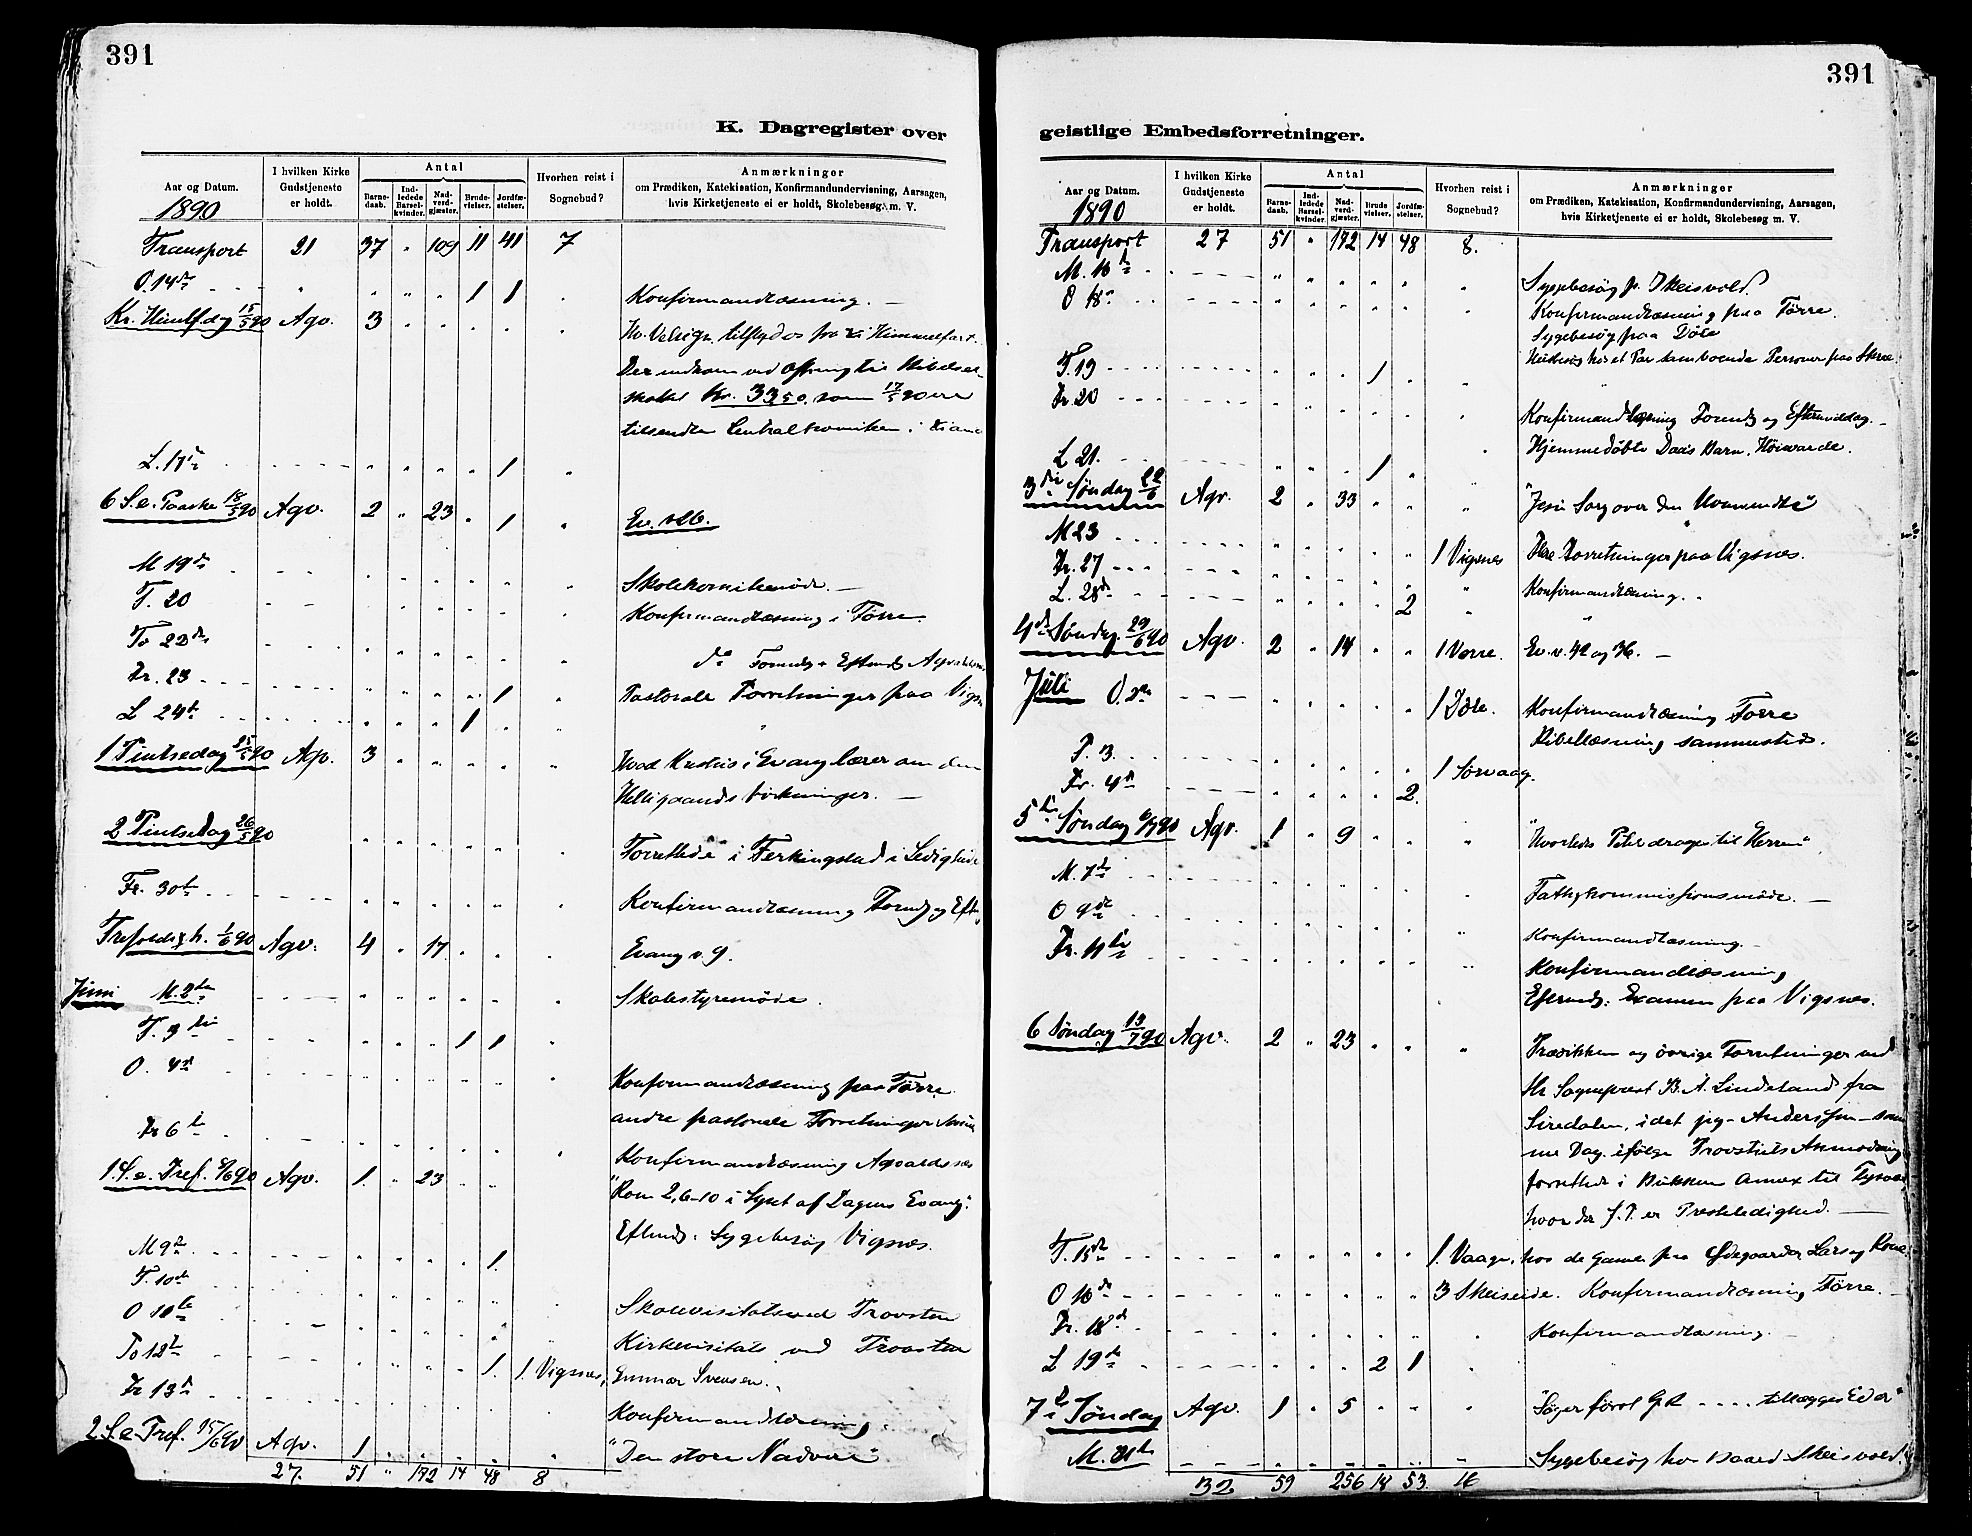 391
K. Dagregister over
Aar og Datum.
1890
I hvilken Kirke Gudstjeneste er holdt.
Antal
Barnedaab. Indledede Barselkvinder. Nadverdgjæster. Brudevielser. Jordfæstelser.
Hvorhen reist i Sognebud?
Anmærkninger
om Prædiken, Katekisation, Konfirmandundervisning, Aarsagen, hvis Kirketjeneste ei er holdt, Skolebesøg m. V.
Transport 21 37 " 109 11 41 7
O. 14de 1 1 Konfirmandlæsning.
Kr. Himlfdag 15/5 90 Agv. 3
Der indkom ved Ofring til Bibelsel-
skabet Kr. 33,50, som 17/5 90 ere
tilsendte Centralkomiteen i
L. 17de 1
6 S. e. Paaske 18/5 90 Agv. 2 " 23 1 Ev. v 26.
M 19de Skolekomitemøde.
T. 20 Konfirmandlæsning i Førre.
To 22de do Formdg + Eftmdg
Fr. 23 1 Pastorale Forretninger paa
L 24de 1
1 Pintsedag 25/5 90 Agv. 3 Hvad Kristus i Evang lærer om den
Helligaands Virkninger.
2 Pintsedag 26/5 90 Forrettede i Ferkingstad i
Fr. 30te Konfirmandlæsning Formdg og Eft
Trefoldigh. 1/6 90 Agv. 4 " 17 Evang v. 9.
Juni M. 2den Skolestyremøde.
T. 3die 1 1
O. 4de Konfirmandlæsning paa Førre
andre pastorale Forretninger
Fr 6te Konfirmandlæsning
1. S. e. Tref. 8/6 90 Agv. 1. " 23 "Rom 2, 6-10 i Lyset af Dagens Evang".
Eftmdg. Sygebesøg Vigsnes.
M 9de 1.
T. 10de
O 11te Skolevisitats ved Provsten
To 12te 1. 1 Vigsnes, Kirkevisitats ved Provsten
Gunnar Svensen.
Fr 13de Konfirmandlæsning
2 S. e. Tref. 15/6 90 Agv. 1 "Den store Nadvere"
27. 51 " 172 14 48 8
391
geistlige Embedsforretninger.
Aar og Datum.
1890
I hvilken Kirke Gudstjeneste er holdt.
Antal
Barnedaab. Indledede Barselkvinder. Nadverdgjæster. Brudevielser. Jordfæstelser.
Hvorhen reist i Sognebud?
Anmærkninger
om Prædiken, Katekisation, Konfirmandundervisning, Aarsagen, hvis Kirketjeneste ei er holdt, Skolebesøg m. V.
Transport 27 51 " 172 14 48 8.
M. 16de Sygebesøg
O 18de Konfirmandlæsning paa Førre.
Sygebesøg paa
T. 19 1 Husbesøg hos et Par samboende Personer paa
Fr. 20 Konfirmandlæsning Formdg og Eftermiddag.
L 21. 1 Hjemmedøbte Barn.
3die Søndag 22/6 Agv. 2 " 33 "Jesu Sorg over den
M 23 1 Vigsnes Forretninger paa Vigsnes.
Fr. 27 Konfirmandlæsning.
L. 28de 2
4de Søndag. 29/6 90 Agv. 2 " 14 1 Ev. v. 42 og 36.
Juli O. 2den 1 Konfirmandlæsning Førre
Bibellæsning sammesteds.
T. 3. 1 Sørvaag.
Fr. 4de 2.
5te Søndag 6/7 90 Agv. 1 " 9 "Hvorledes Peter drages til Herren".
M. 7de Fattigkommissionsmøde.
O 9de Konfirmandlæsning.
Fr. 11te Konfirmandlæsning
Eftermdg. Examen paa Vigsnes.
6 Søndag 13/7 90 Agv. 2 " 23 Prædiken og øvrige Forretninger ved
Hr Sogneprest B. A. Lindeland fra
Siredalen, idet jeg - Anderssen - sam
me Dag ifølge Provstiets Anmodning
forrettede i Bukken Annex til
hvor der f. T. er Presteledighed.
T. 15de 1. Vaage, hos de gamle paa Ødegaarden Lars og Kone.
O 16de 3 Skeiseide. Konfirmandlæsning Førre.
Fr. 18de Konfirmandlæsning.
L 19de 2 1
7de Søndag Agv. 1 " 5 "Søger først G R .... tillægges Eder"
M. 21de Sygebesøg hos
32 59 256 18 53. 16